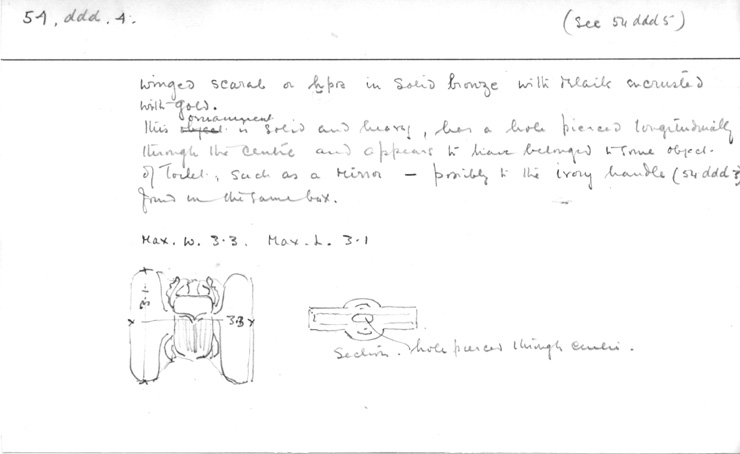 54, ddd. 4. (See 54 ddd 5)
Winged scarab or hprs in solid bronze with details encrusted
with gold.
ornament
This object is solid and heavy, has a hole pierced longitudinally
through the centre and appears to have belonged to some object
of Toilet, such as a Mirror – possibly to the ivory handle (54 ddd
found in the same box.
Max. W. 3.3. Max. L. 3.1
3.1
3.3
Section. hole pierced through centre.